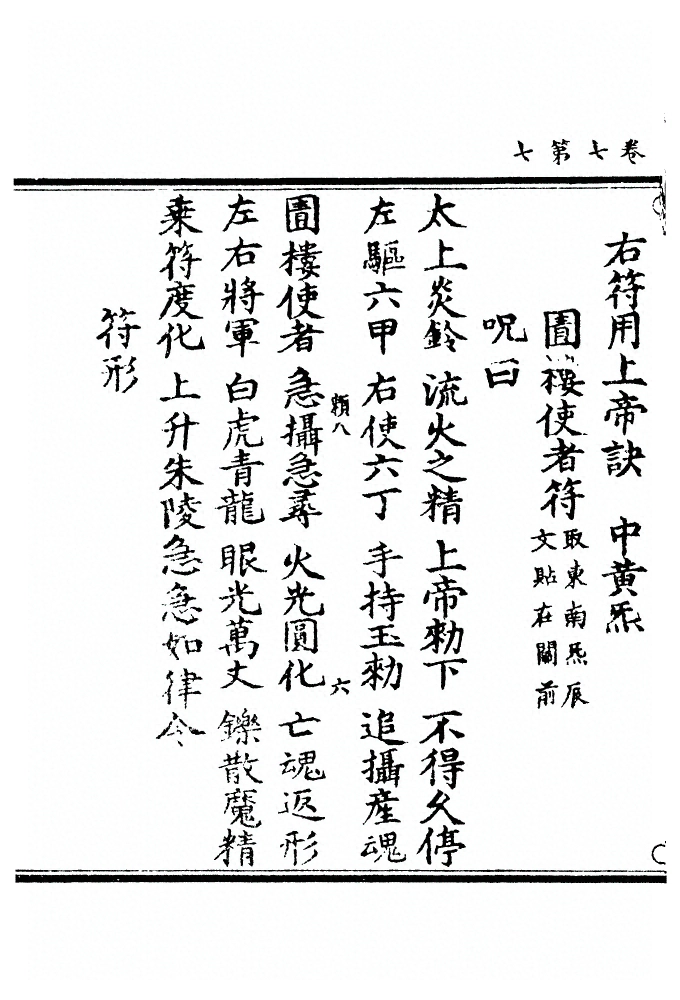 卷七第七
右符用上帝訣　中黄炁
圊樓使者符
取東南炁辰
文貼在闌前
呪曰
太上炎鈴　流火之精　上帝勑下　不得久停
左驅六甲　右使六丁　手持玉勑　追攝産魂
頼八　六
圊樓使者　急攝急尋　火光圓化　亡魂返形
左右將軍　白虎青龍　眼光萬丈　鑠散魔精
乗符度化　上升朱陵　急急如律令
符形